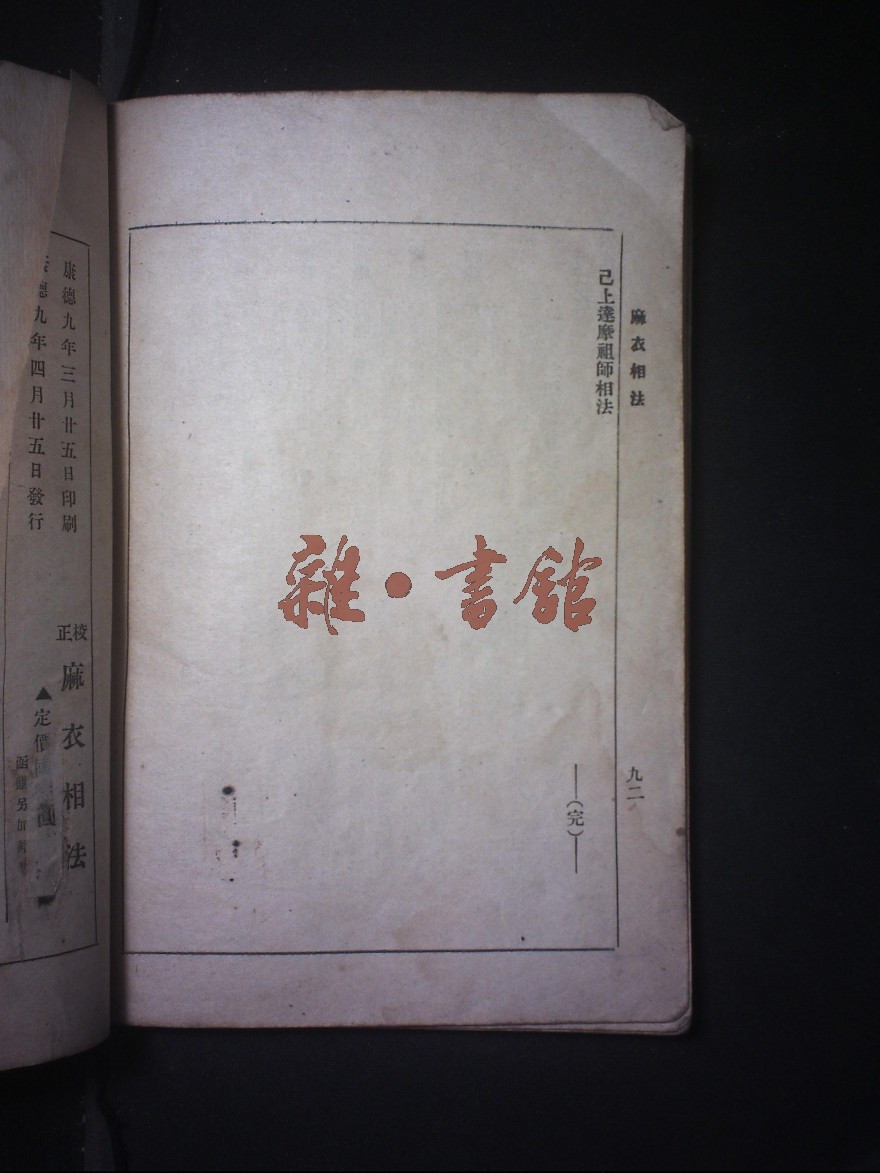 麻衣相法
九二
己上達摩祖師相法
——(完)——
雜·書館
康德九年三月廿五日印刷
德九年四月廿五日發行
校正
麻衣相法
▲定價